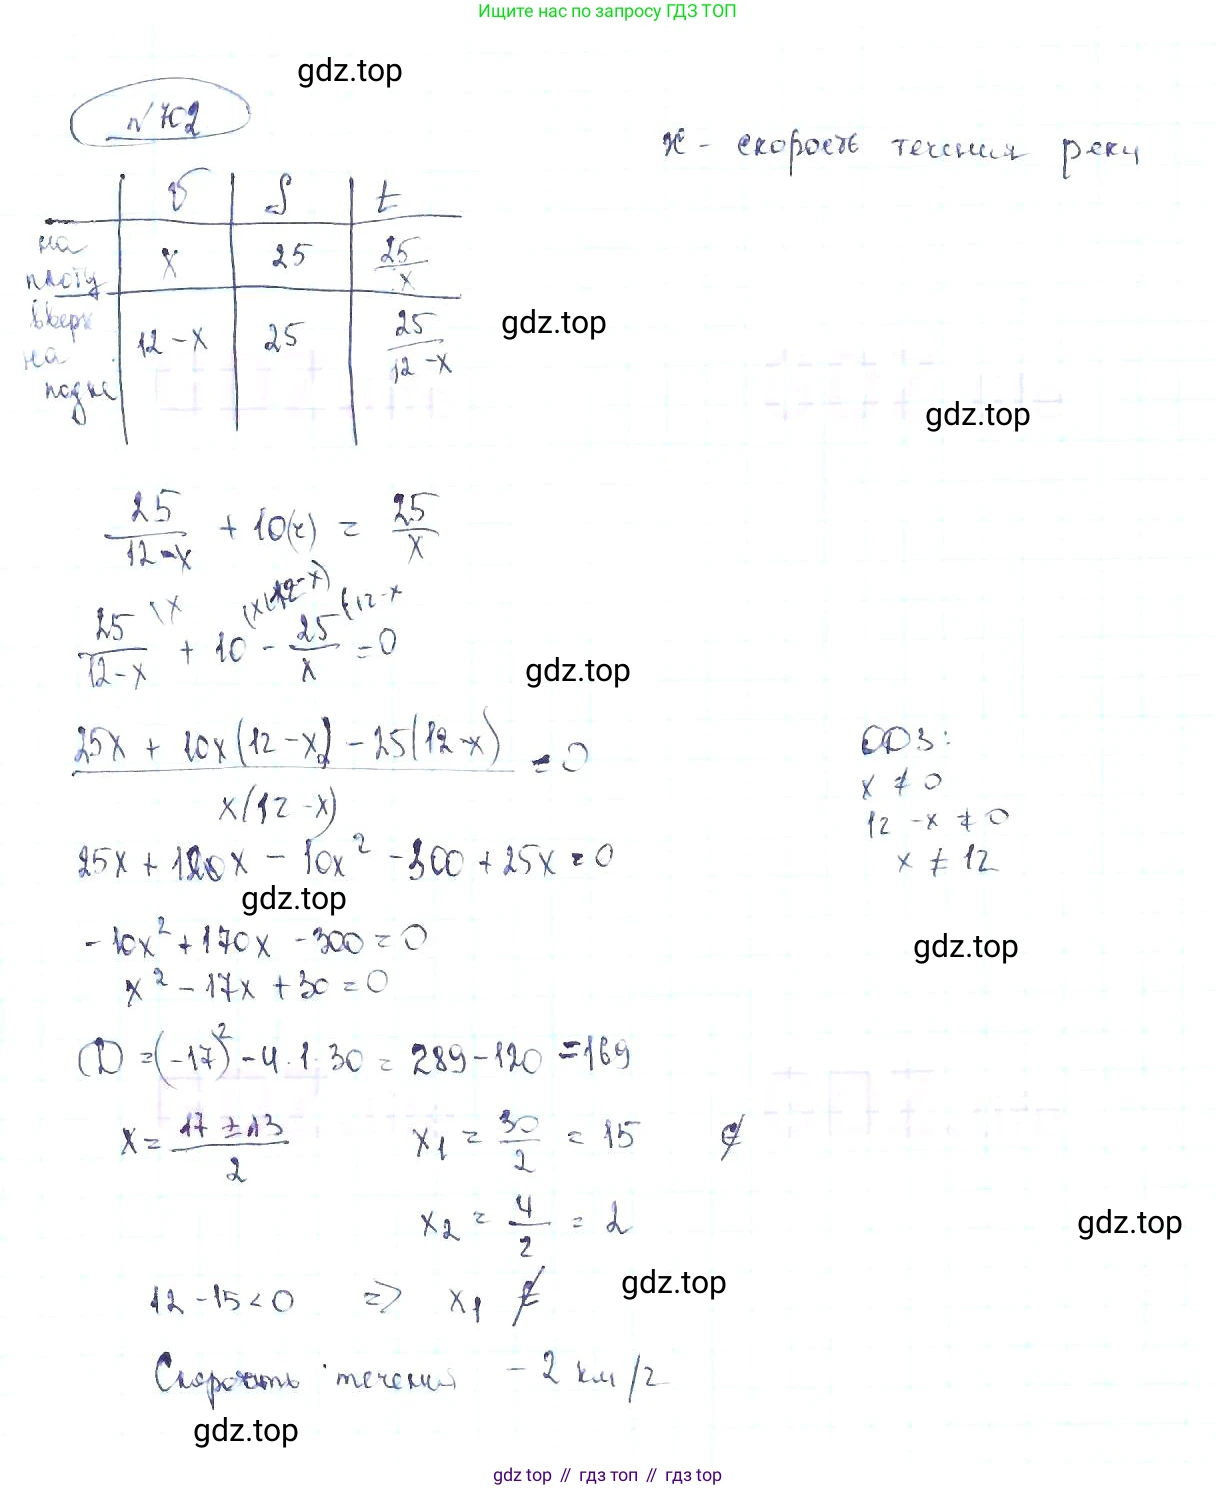 Ищите нас по запросу ГДЗ ТОП
gdz.top
n 702
x - скорость течения реки
v S t
на плоту x 25 25/x
вверх на лодке 12 - x 25 25/(12 - x)
gdz.top
gdz.top
25/(12 - x) + 10(ч) = 25/x
25/(12 - x) (x + 10 (x(12 - x) - 25/x (12 - x = 0
gdz.top
(25x + 10x(12 - x) - 25(12 - x))/(x(12 - x)) = 0
ОДЗ:
x ≠ 0
12 - x ≠ 0
x ≠ 12
25x + 120x - 10x² - 300 + 25x = 0
gdz.top
-10x² + 170x - 300 = 0
gdz.top
x² - 17x + 30 = 0
D = (-17)² - 4 · 1 · 30 = 289 - 120 = 169
x = (17 ± 13)/2 x₁ = 30/2 = 15 ∉
x₂ = 4/2 = 2
gdz.top
12 - 15 < 0 => x₁ ∉
gdz.top
Скорость течения - 2 км/ч
gdz.top
gdz top // гдз топ // gdz top